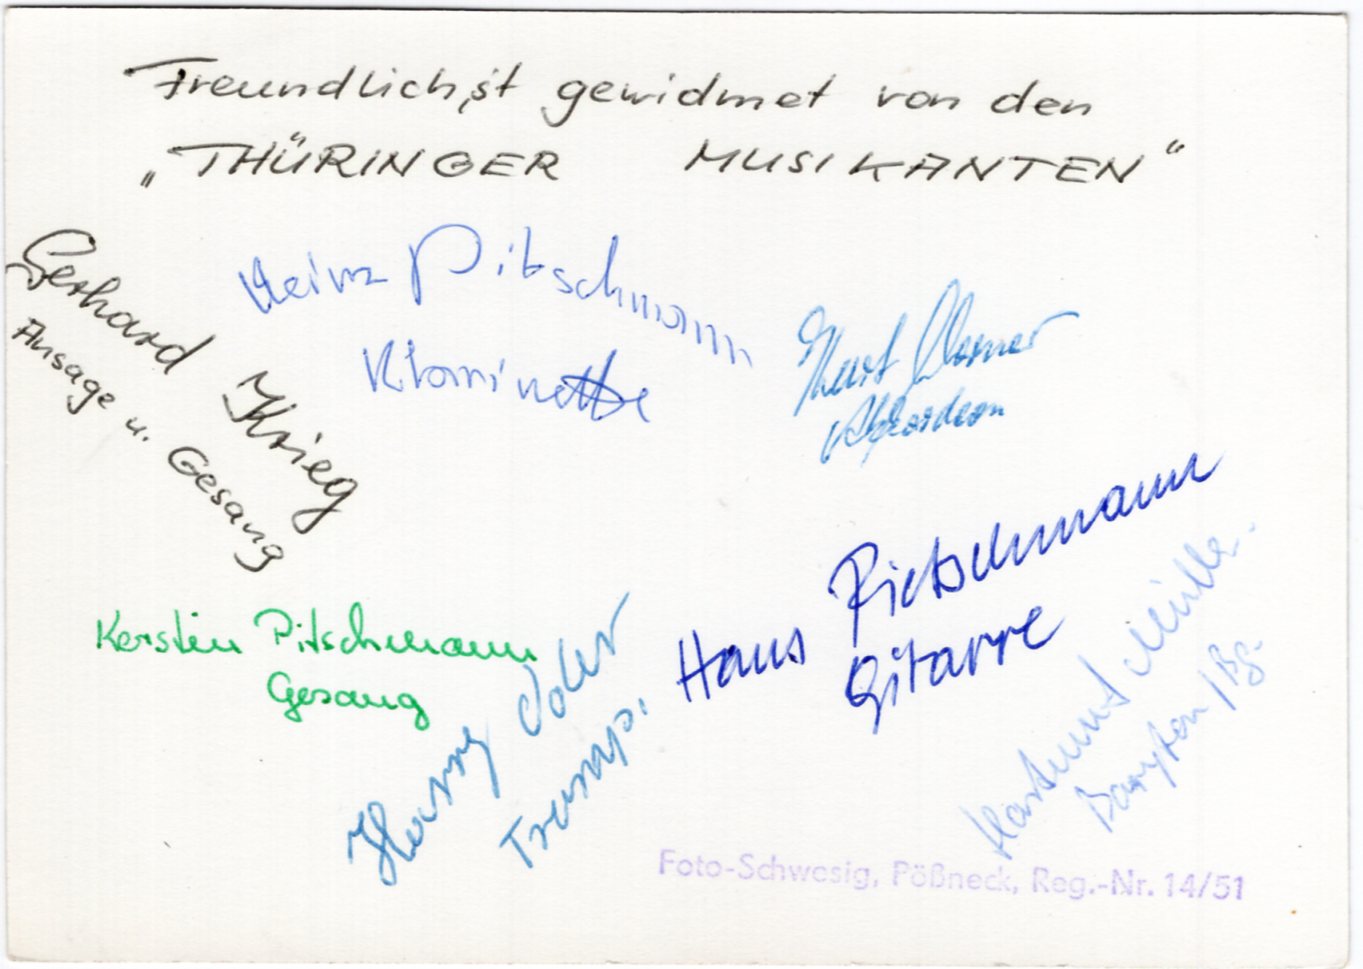 Freundlichst gewidmet von den
„THÜRINGER MUSIKANTEN“
Gerhard Krieg
Ansage u. Gesang
Heinz Pitschmann
Klarinette
Kurt
Akkordeon
Hans Pietschmann
Gitarre
Kerstin Pitschmann
Gesang
Harry
Tromp.
Hartmut Müller
Baryton/Bg.
Foto-Schwesig, Pößneck, Reg.-Nr. 14/51